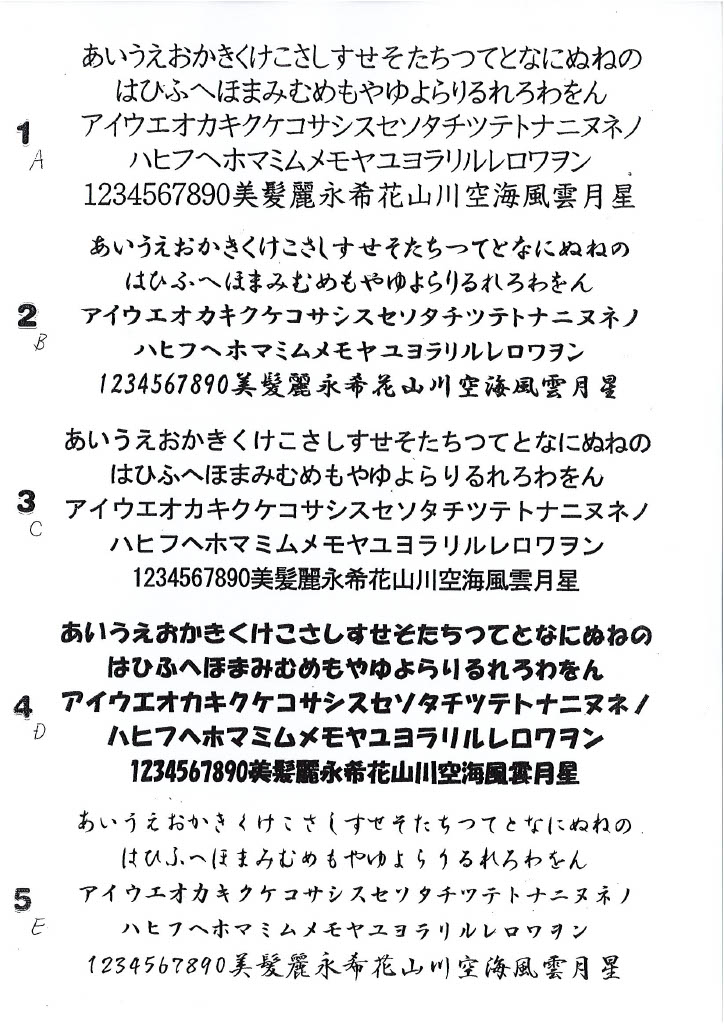 あいうえおかきくけこさしすせそたちつてとなにぬねの
はひふへほまみむめもやゆよらりるれろわをん
1
アイウエオカキクケコサシスセソタチツテトナニヌネノ
A
ハヒフヘホマミムメモヤユヨラリルレロワヲン
1234567890美髪麗永希花山川空海風雲月星
あいうえおかきくけこさしすせそたちつてとなにぬねの
はひふへほまみむめもやゆよらりるれろわをん
2
アイウエオカキクケコサシスセソタチツテトナニヌネノ
B
ハヒフヘホマミムメモヤユヨラリルレロワヲン
1234567890美髪麗永希花山川空海風雲月星
あいうえおかきくけこさしすせそたちつてとなにぬねの
はひふへほまみむめもやゆよらりるれろわをん
3
アイウエオカキクケコサシスセソタチツテトナニヌネノ
C
ハヒフヘホマミムメモヤユヨラリルレロワヲン
1234567890美髪麗永希花山川空海風雲月星
あいうえおかきくけこさしすせそたちつてとなにぬねの
はひふへほまみむめもやゆよらりるれろわをん
4
アイウエオカキクケコサシスセソタチツテトナニヌネノ
D
ハヒフヘホマミムメモヤユヨラリルレロワヲン
1234567890美髪麗永希花山川空海風雲月星
あいうえおかきくけこさしすせそたちつてとなにぬねの
はひふへほまみむめもやゆよらりるれろわをん
5
アイウエオカキクケコサシスセソタチツテトナニヌネノ
E
ハヒフヘホマミムメモヤユヨラリルレロワヲン
1234567890美髪麗永希花山川空海風雲月星